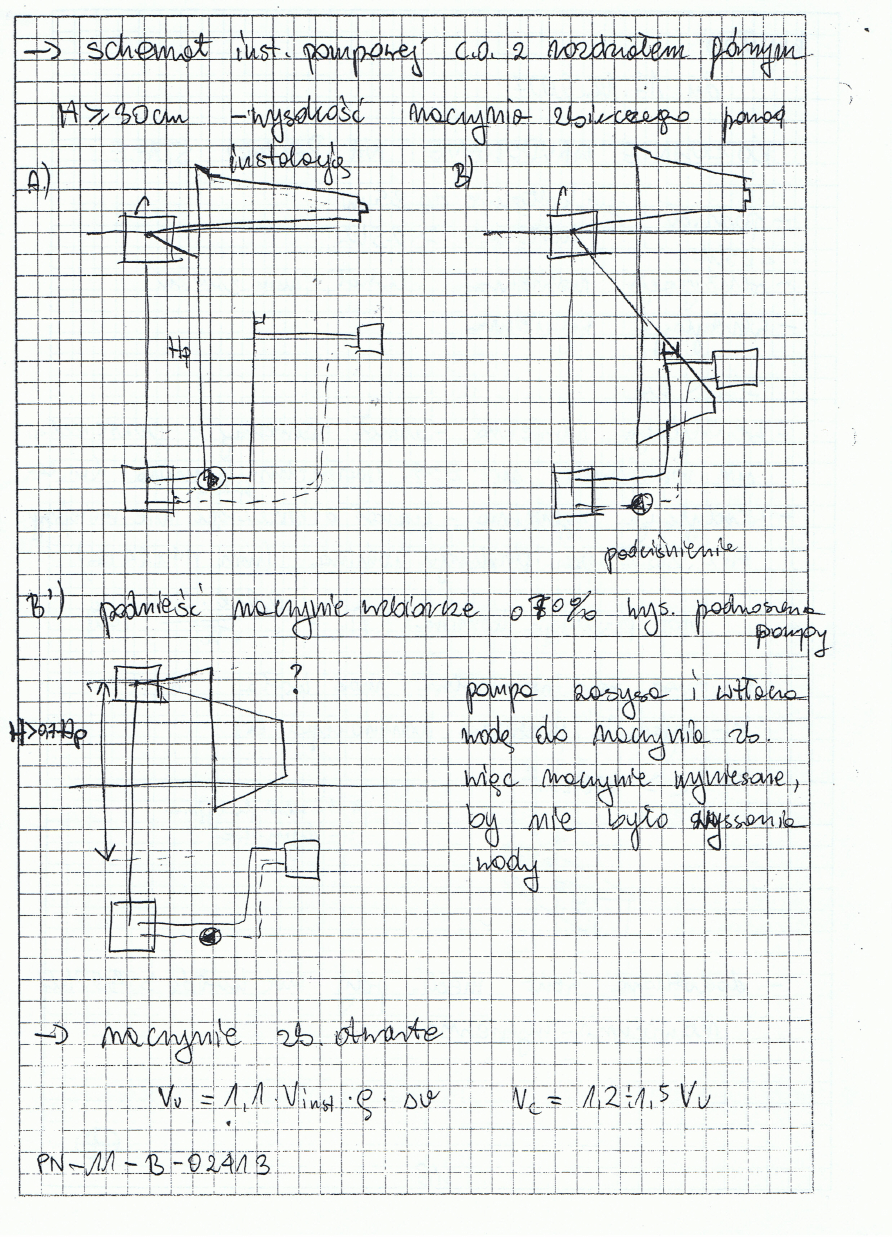 → schemat inst. pompowej c.o. z rozdziałem górnym
H ≥ 30cm - wysokość naczynia zbiorczego ponad
instalację
A)
B)
Hp
podciśnienie
B') podnieść naczynie wzbiorcze o 70% wys. podnoszenia
pompy
?
H>0,7Hp
pompa zasysa i wtłacza
wodę do naczynia zb.
więc naczynie wyniesione,
by nie było wyssania
wody
→ naczynie zb. otwarte
Vu = 1,1 · Vinst · ρ · Δv Vc = 1,2÷1,5 Vu
PN-11-B-02413